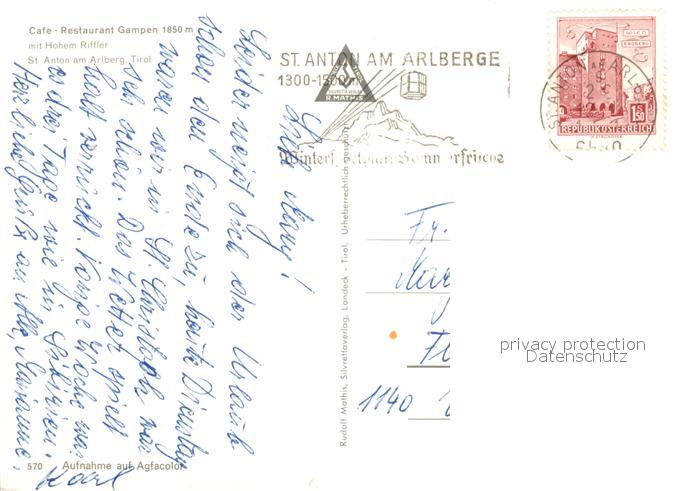 Cafe - Restaurant Gampen 1850 m
mit Hohem Riffler
St. Anton am Arlberg, Tirol
Liebe Mary!
Leider neigt sich der Urlaub
schon dem Ende zu, heute Dienstag
waren wir in St. Christoph, war
sehr schön. Das Wetter spielt
halt verrückt. Vorige Woche war
es drei Tage wie in Sibirien.
Herzliche Grüße an alle,
Karl
570 Aufnahme auf Agfacolor
ST. ANTON AM ARLBERG
1300-1500 m
SILVRETTA VERLAG
R. MATHIS
Wintersportplatz Sommerfrische
Rudolf Mathis, Silvrettaverlag, Landeck - Tirol. Urheberrechtlich geschützt
ERDBERG
1.50
REPUBLIK ÖSTERREICH
ST. ANTON AM ARLB
6580
Fr.
Mar
1140
privacy protection
Datenschutz